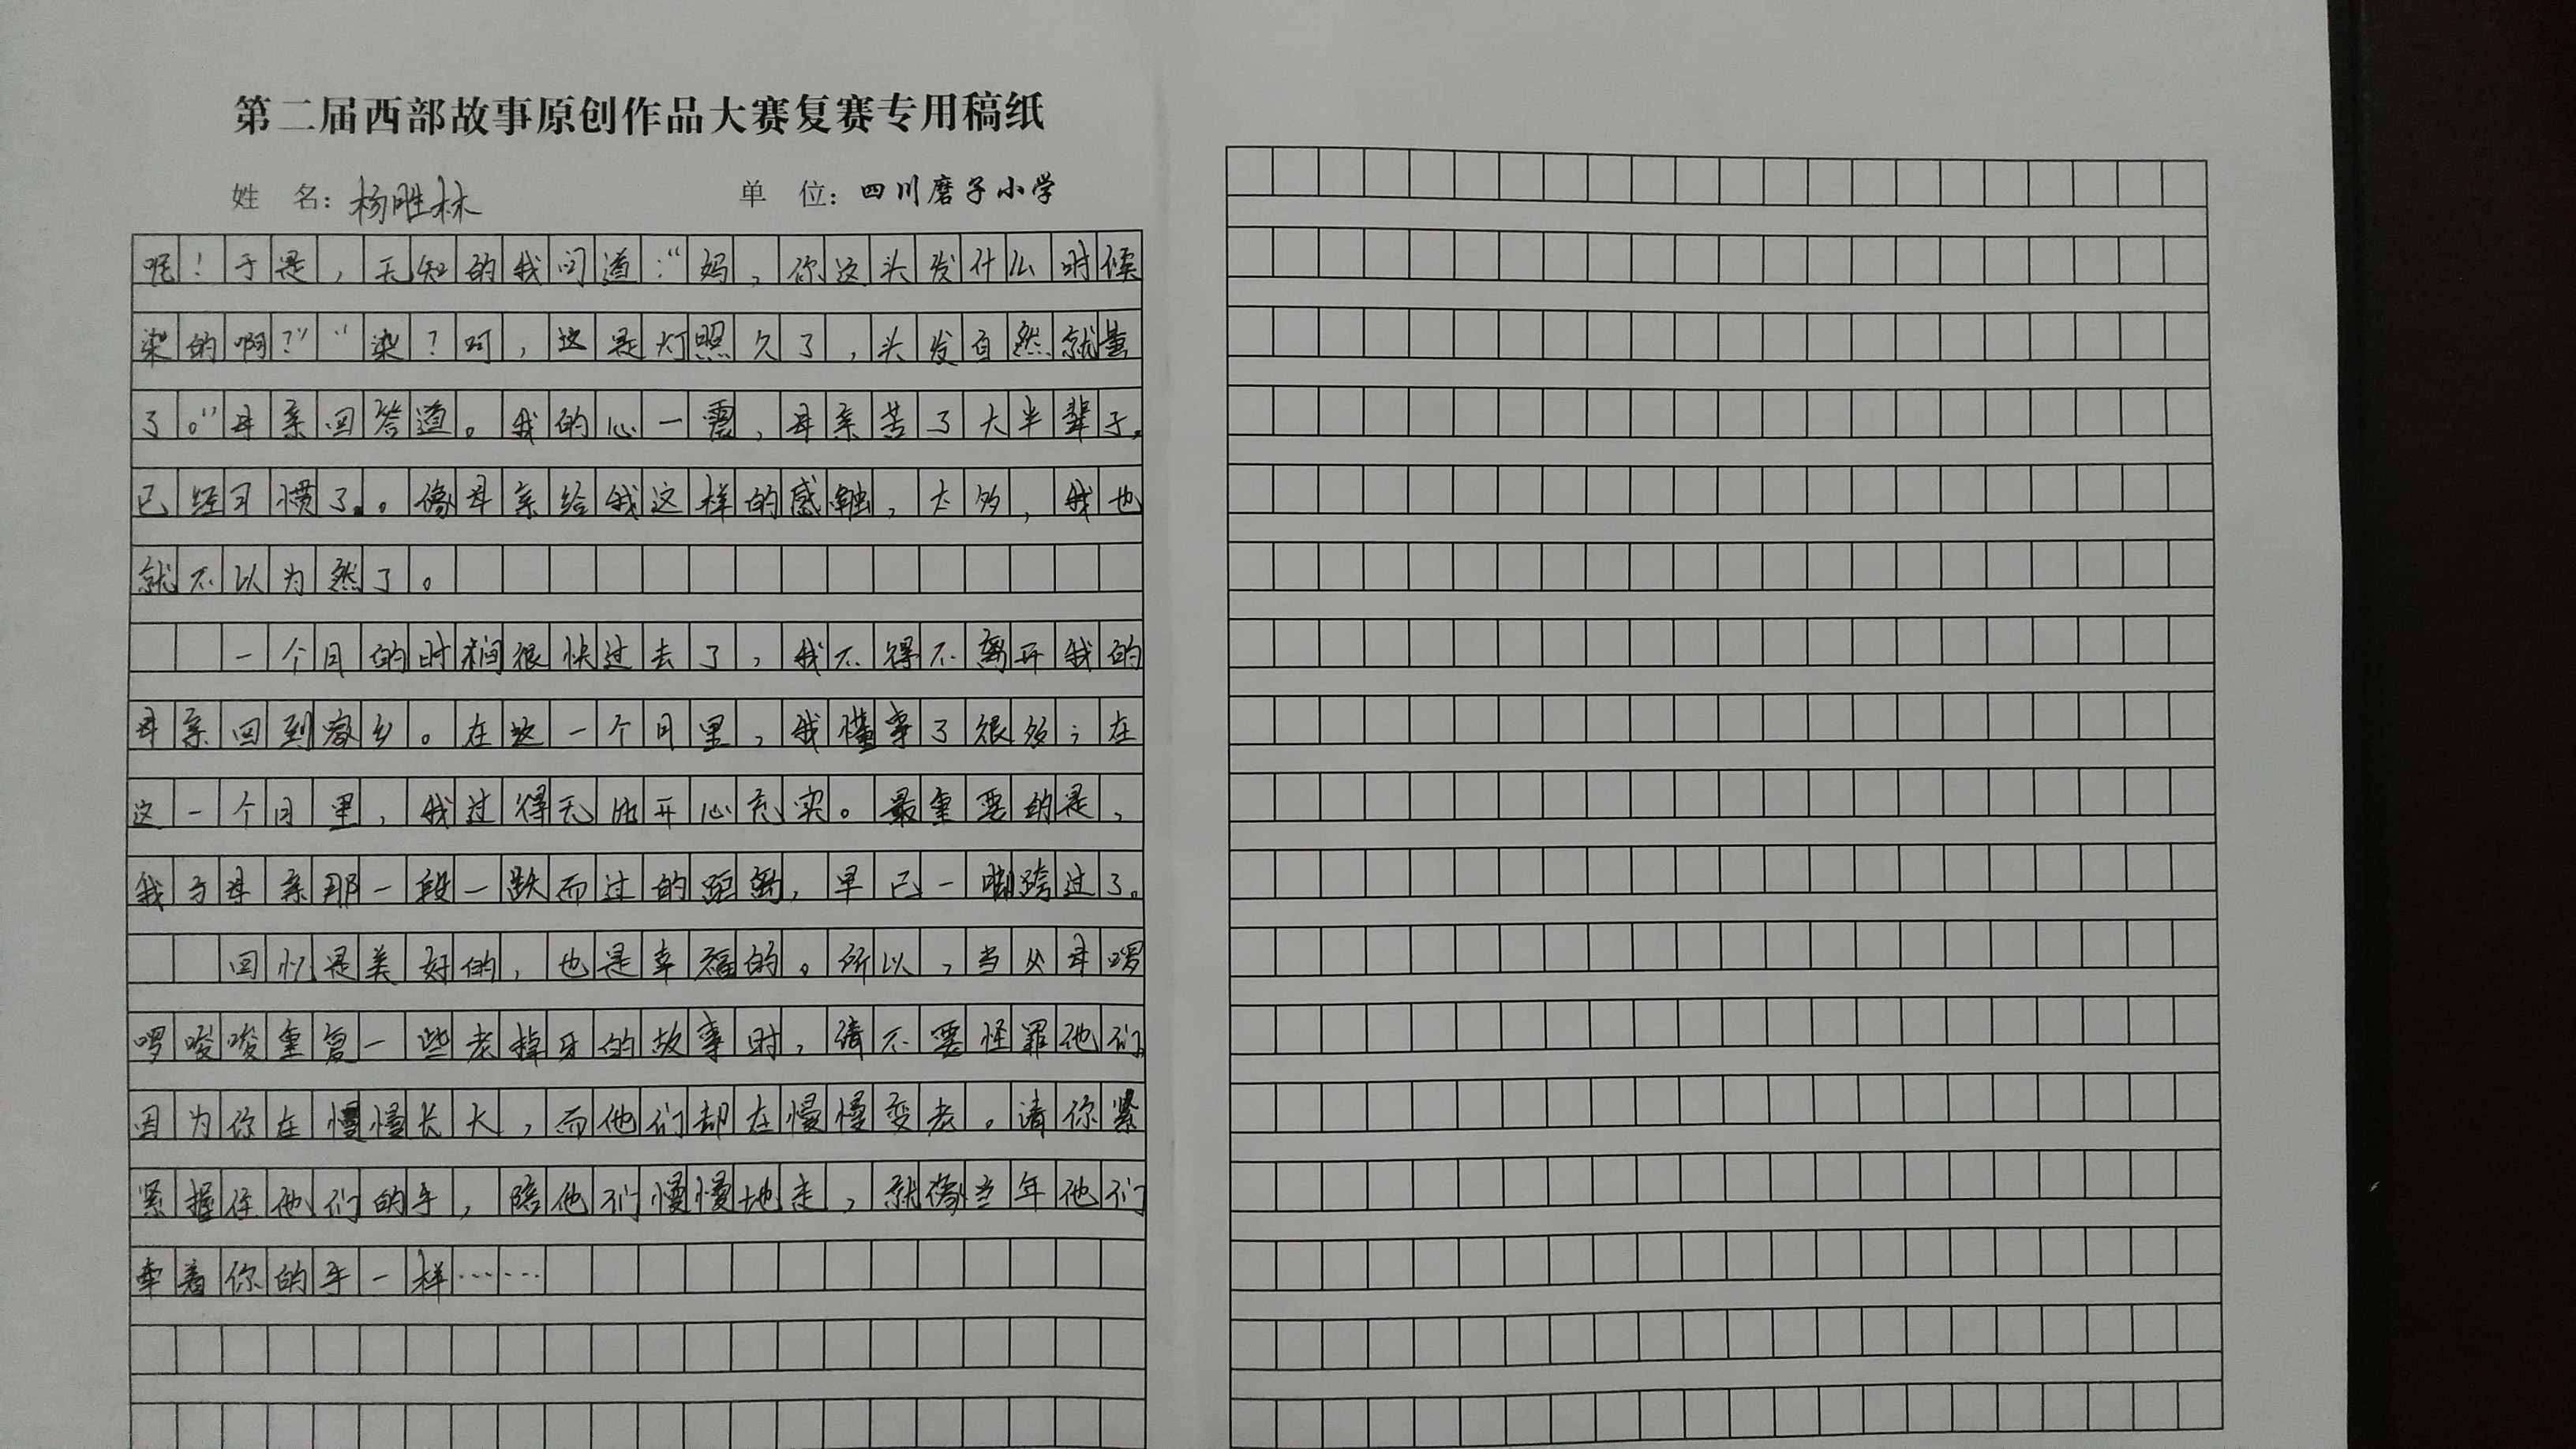 第二届西部故事原创作品大赛复赛专用稿纸
姓 名：杨胜林 单 位：四川磨子小学
呢！于是，无知的我问道：“妈，你这头发什么时候
染的啊？”“染？呵，这是灯照久了，头发自然就黄
了。”母亲回答道。我的心一震，母亲苦了大半辈子，
已经习惯了。。像母亲给我这样的感触，太多，我也
就不以为然了。
一个月的时间很快过去了，我不得不离开我的
母亲回到家乡。在这一个月里，我懂事了很多；在
这一个月里，我过得无比开心充实。最重要的是，
我与母亲那一段一跃而过的距离，早已一脚跨过了。
回忆是美好的，也是幸福的。所以，当父母啰
啰唆唆重复一些老掉牙的故事时，请不要怪罪他们，
因为你在慢慢长大，而他们却在慢慢变老。请你紧
紧握住他们的手，陪他们慢慢地走，就像当年他们
牵着你的手一样……